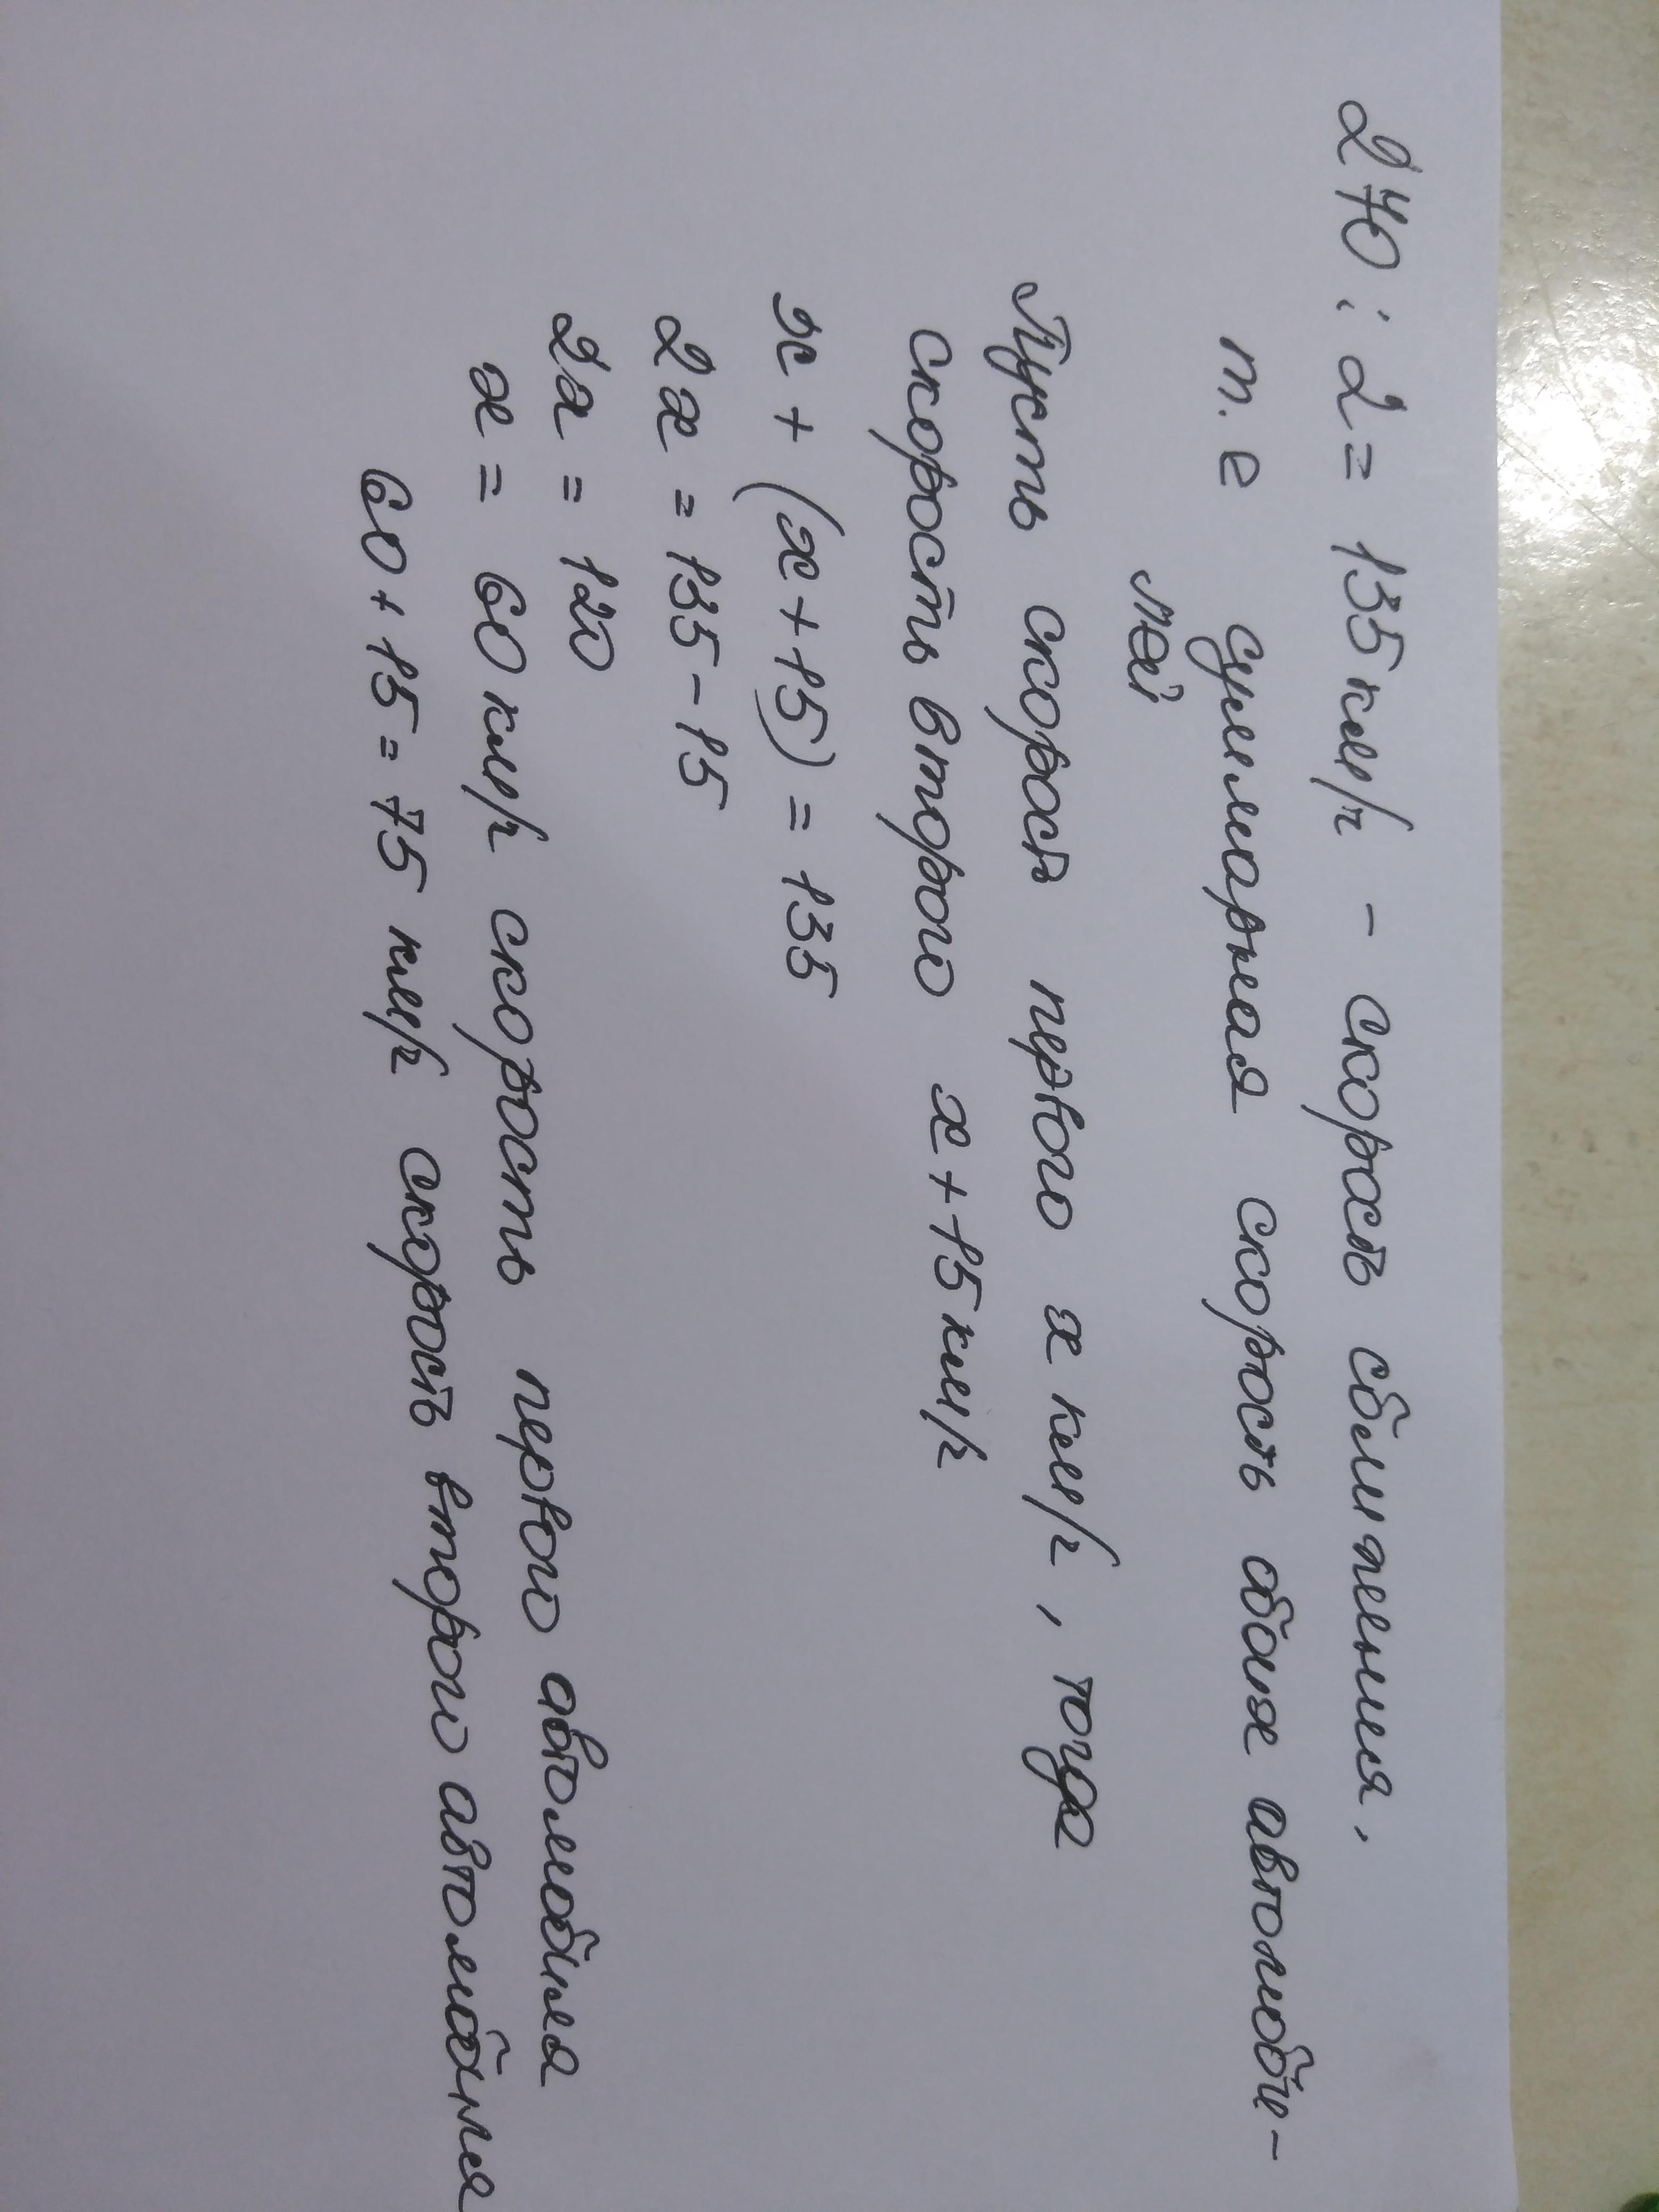 270 : 2 = 135 км/ч - скорость сближения,
т.е суммарная скорость обоих автомоби-
лей
Пусть скорость первого x км/ч, тогда
скорость второго x + 15 км/ч
x + (x + 15) = 135
2x = 135 - 15
2x = 120
x = 60 км/ч скорость первого автомобиля
60 + 15 = 75 км/ч скорость второго автомобиля